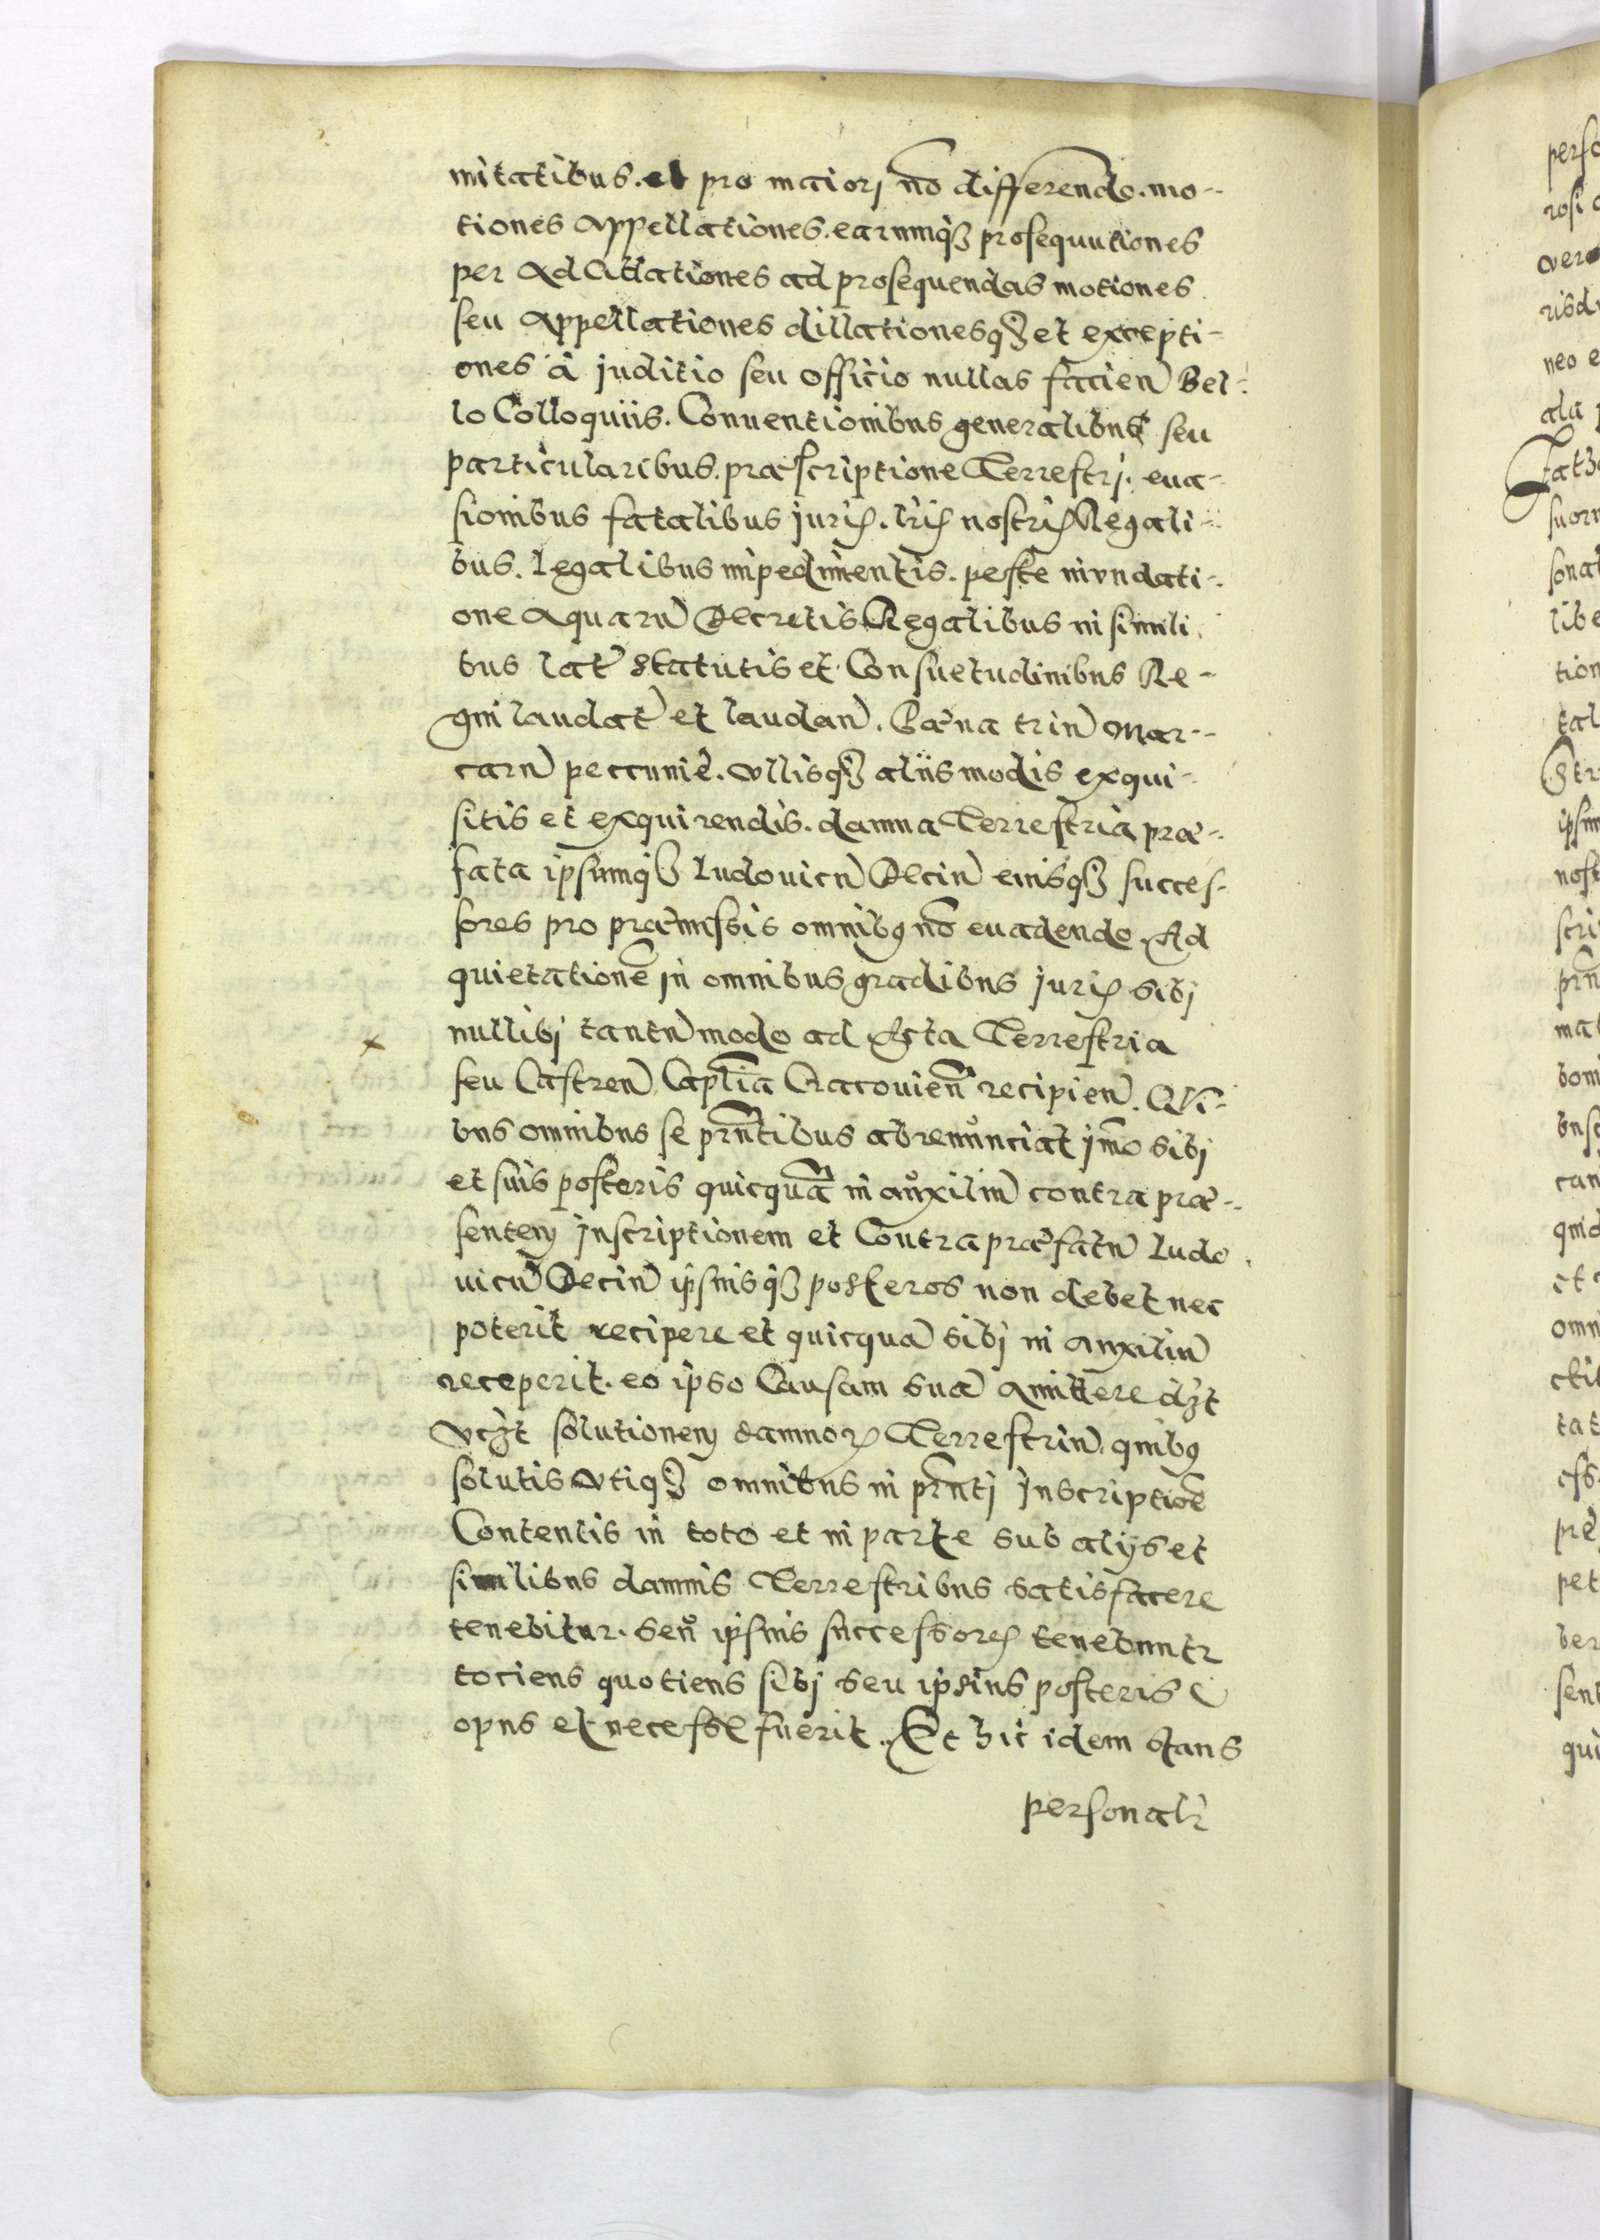 mitatibus. et pro maiorj nō differendo. mo-
tiones appellationes. earumqʒ prosequutiones
per ad Citationes ad prosequendas motiones
seu appellationes dillationesqʒ et excepti-
ones à juditio seu officio nullas facien̄ Bel-
lo Colloquiis. Conuentionibus generalibus seu
particularibus. præscriptione Terrestrj. eua-
sionibus fatalibus juris. lr̃is nostris Regali-
bus. legalibus impedimentis. peste invndati-
one aquarū Decretis Regalibus in simili
bus lat̃ Statutis et Consuetudinibus Re-
gni laudat̃ et laudan̄. Pæna trin̄ Mar-
carū peccuniè. vllisqʒ aliis modis exqui-
sitis et exquirendis. damna Terrestria præ-
fata ipsumqʒ Ludouicū Deciū eiusqʒ succes-
sores pro præmissis omnibus nō euadendo. Ad
quietationē jn omnibus gradibus juris sibj
nullibj tantū modo ad Acta Terrestria
x
seu Castren̄ Capl̄ia Cracouien̄ recipien̄. QVi-
bus omnibus se prn̄tibus abrenunciat jm̄o sibj
et suis posteris quicquā in auxiliū contra præ-
sentem jnscriptionem et Contra præfatū Ludo
uicū Deciū ipsiusqʒ posteros non debet nec
poterit recipere et quicquā sibj in auxiliū
receperit. eo ipso Causam suā amittere dʒt
vcʒt solutionem damnorꝝ Terrestriū. quibus
solutis vtiqʒ omnibus in prn̄tj jnscriptiōe
Contentis in toto et in parte sub alijs et
similibus damnis Terrestribus satisfacere
tenebitur. Seu ipsius successores tenebuntr
totiens quotiens sibj seu ipsius posteris
opus et necesse fuerit. Et hic idem stans
personalr̃